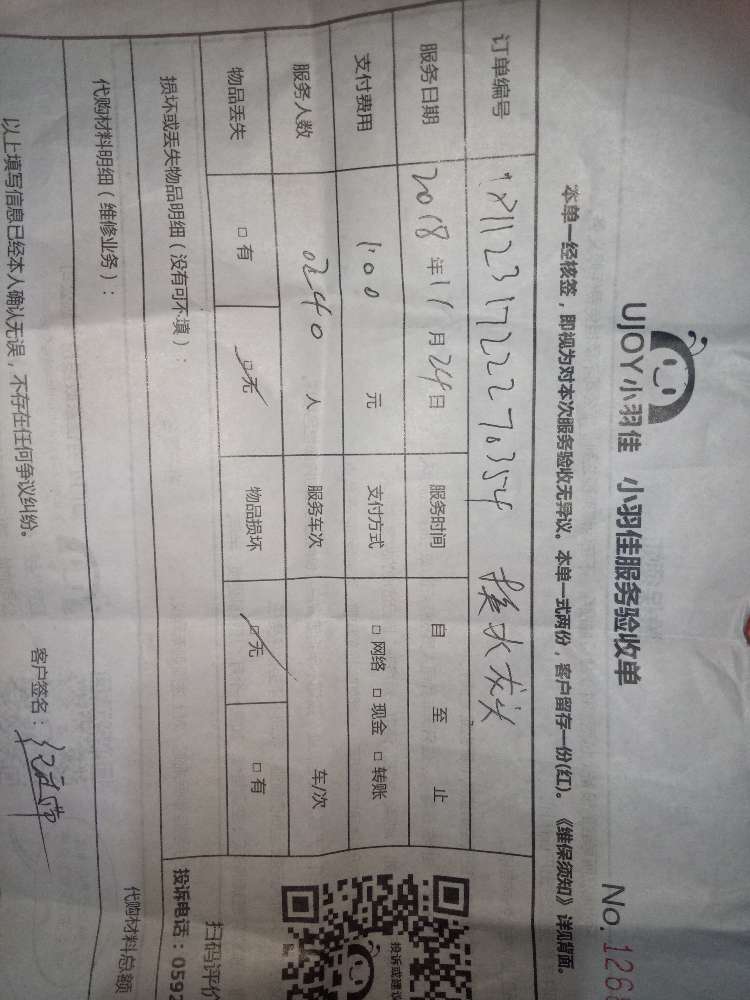 UJOY小羽佳 小羽佳服务验收单 No. 126
本单一经核签，即视为对本次服务验收无异议。本单一式两份，客户留存一份(红)。《维保须知》详见背面。
订单编号 换水龙头
服务日期 2018 年 11 月 24 日 服务时间 自 至 止
支付费用 100 元 支付方式 □ 网络 □ 现金 □ 转账
服务人数 0240 人 服务车次 车/次
物品丢失 □ 有 □ 无 物品损坏 □ 无 □ 有
损坏或丢失物品明细（没有可不填）：
代购材料明细（维修业务）：
代购材料总额
以上填写信息已经本人确认无误，不存在任何争议纠纷。
客户签名：
投诉或建议
扫码评价
投诉电话：0592